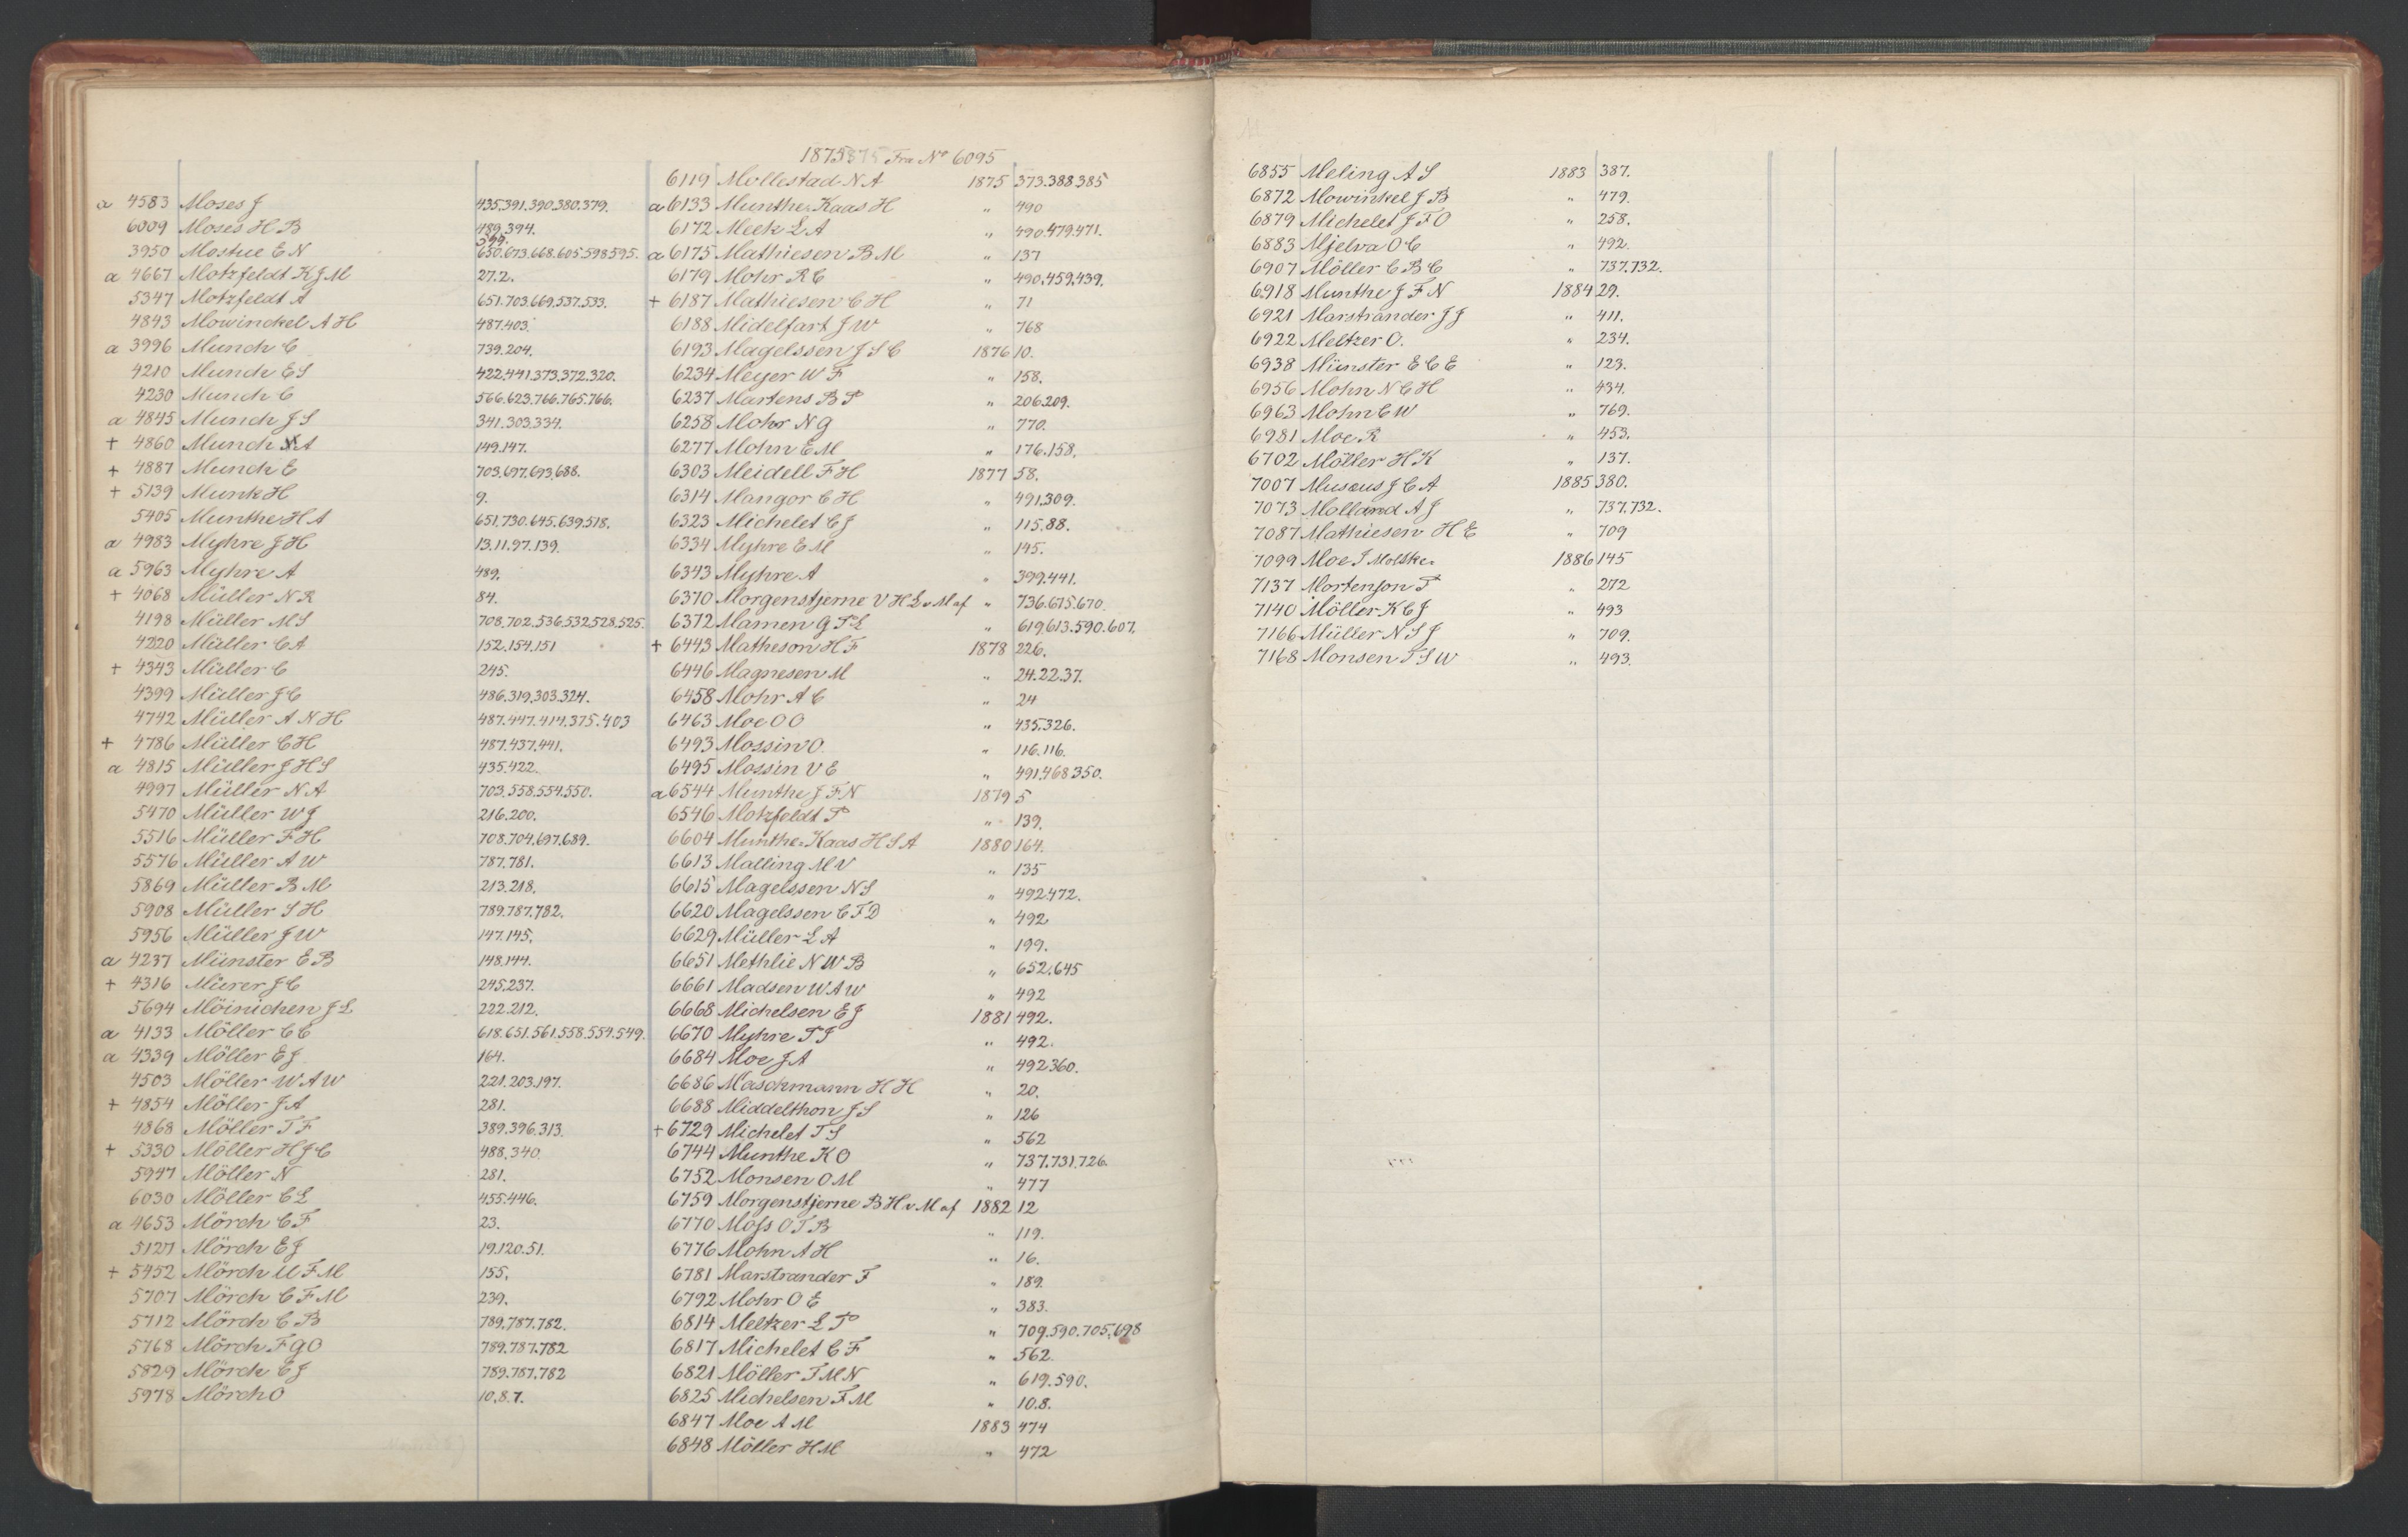 a 4583 Moses J 435.391.390.380.379.
6009 Moses H B 489.394.
599.
3950 Mostue E N 650.673.668.605.598.595.
a 4667 Motzfeldt K J M 27.2.
5347 Motzfeldt A 651.703.669.537.533.
4843 Mowinckel A H 487.403.
a 3996 Munch C 739.204.
4210 Munch E S 422.441.373.372.320.
4230 Munch C 566.623.766.765.766.
a 4845 Munch J S 341.303.334.
+ 4860 Munch A 149.147.
+ 4887 Munch E 703.697.693.688.
+ 5139 Munk H 9.
5405 Munthe H A 651.730.645.639.518.
a 4983 Myhre J H 13.11.97.139.
a 5963 Myhre A 489.
+ 4068 Müller N R 84.
4198 Müller M S 708.702.536.532.528.525.
4220 Müller C A 152.154.151
+ 4343 Müller C 245.
4399 Müller J C 486.319.303.324.
4742 Müller A N H 487.447.414.375.403
+ 4786 Müller C H 487.437.441.
a 4815 Müller J H S 435.422.
4997 Müller N A 703.558.554.550.
5470 Müller W J 216.200.
5516 Müller F H 708.704.697.689.
5576 Müller A W 787.781.
5869 Müller B M 213.218.
5908 Müller S H 789.787.782.
5956 Müller J W 147.145.
a 4237 Münster E B 148.144.
+ 4316 Mürer J C 245.237.
5694 Möinichen J L 222.212.
a 4133 Möller C C 618.651.561.558.554.549.
a 4339 Möller E J 164.
4503 Möller W A W 221.203.197.
+ 4854 Möller J A 281.
4868 Möller T F 389.396.313.
+ 5330 Möller H J C 488.340.
5947 Möller N 281.
6030 Möller C L 455.446.
a 4653 Mörch C F 23.
5127 Mörch E J 19.120.51.
+ 5452 Mörch U F M 155.
5707 Mörch C F M 239.
5712 Mörch C B 789.787.782.
5768 Mörch F G O 789.787.782
5829 Mörch C J 789.787.782
5978 Mörch O 10.8.7.
1875 Fra No 6095
6119 Mollestad N A 1875 373.388.385
a 6133 Munthe-Kaas H " 490
6172 Meek L A " 490.479.471.
a 6175 Mathiesen B M " 137
6179 Mohr R C " 490.459.439.
+ 6187 Mathiesen C H " 71
6188 Midelfart J W " 768
6193 Magelssen J S C 1876 10.
6234 Meyer W F " 158.
6237 Martens B P " 206.209.
6258 Mohr N G " 770.
6277 Mohn E M " 176.158.
6303 Meidell F H 1877 58.
6314 Mangor C H " 491.309.
6323 Michelet C J " 115.88.
6334 Myhre E M " 145.
6343 Myhre A " 399.441.
6370 Morgenstjerne V H L v M af " 736.675.670.
6372 Mamen G P L " 619.613.590.607.
+ 6443 Matheson H F 1878 226.
6446 Magnesen M " 24.22.37.
6458 Mohr A C " 24
6463 Moe O O " 435.326.
6493 Mossin O. " 116.116.
6495 Mossin V E " 491.468.350.
a 6544 Munthe J F N 1879 5
6546 Motzfeldt P " 139.
6604 Munthe-Kaas H S A 1880 164.
6613 Malling M V " 135
6615 Magelssen N S " 492.472.
6620 Magelssen C F D " 492
6629 Müller L A " 199.
6651 Methlie N W B " 652.645
6661 Madsen W A W " 492
6668 Michelsen E J 1881 492.
6670 Myhre P T " 492.
6684 Moe J A " 492.360.
6686 Maschmann H H " 20.
6688 Middelthon J S " 126
+ 6729 Michelet T S " 562
6744 Munthe K O " 737.731.726.
6752 Monsen O M " 477
6759 Morgenstjerne B H v M af 1882 12
6770 Moss O T B " 119.
6776 Mohn A H " 16.
6781 Marstrander F " 189.
6792 Mohr O E " 383.
6814 Meltzer L P " 709.590.705.698
6817 Michelet C F " 562.
6821 Möller T M N " 619.590.
6825 Michelsen F M " 10.8.
6847 Moe A M 1883 474
6848 Möller H M " 472
6855 Meling A S 1883 387.
6872 Mowinkel J B " 479.
6879 Michelet J F O " 258.
6883 Mjelva O C " 492.
6907 Möller C B C " 737.732.
6918 Munthe J F N 1884 29.
6921 Marstrander J J " 411.
6922 Meltzer O. " 234.
6938 Münster E C E " 123.
6956 Mohn N C H " 434.
6963 Mohn C W " 769.
6981 Moe R " 453.
6702 Möller H K " 137.
7007 Musæus J C A 1885 380.
7073 Molland A J " 737.732.
7087 Mathiesen H E " 709
7099 Moe I Moltke- 1886 145
7137 Mortenson P " 272
7140 Möller K C J " 493
7166 Müller N S J " 709.
7168 Monsen T S W " 493.